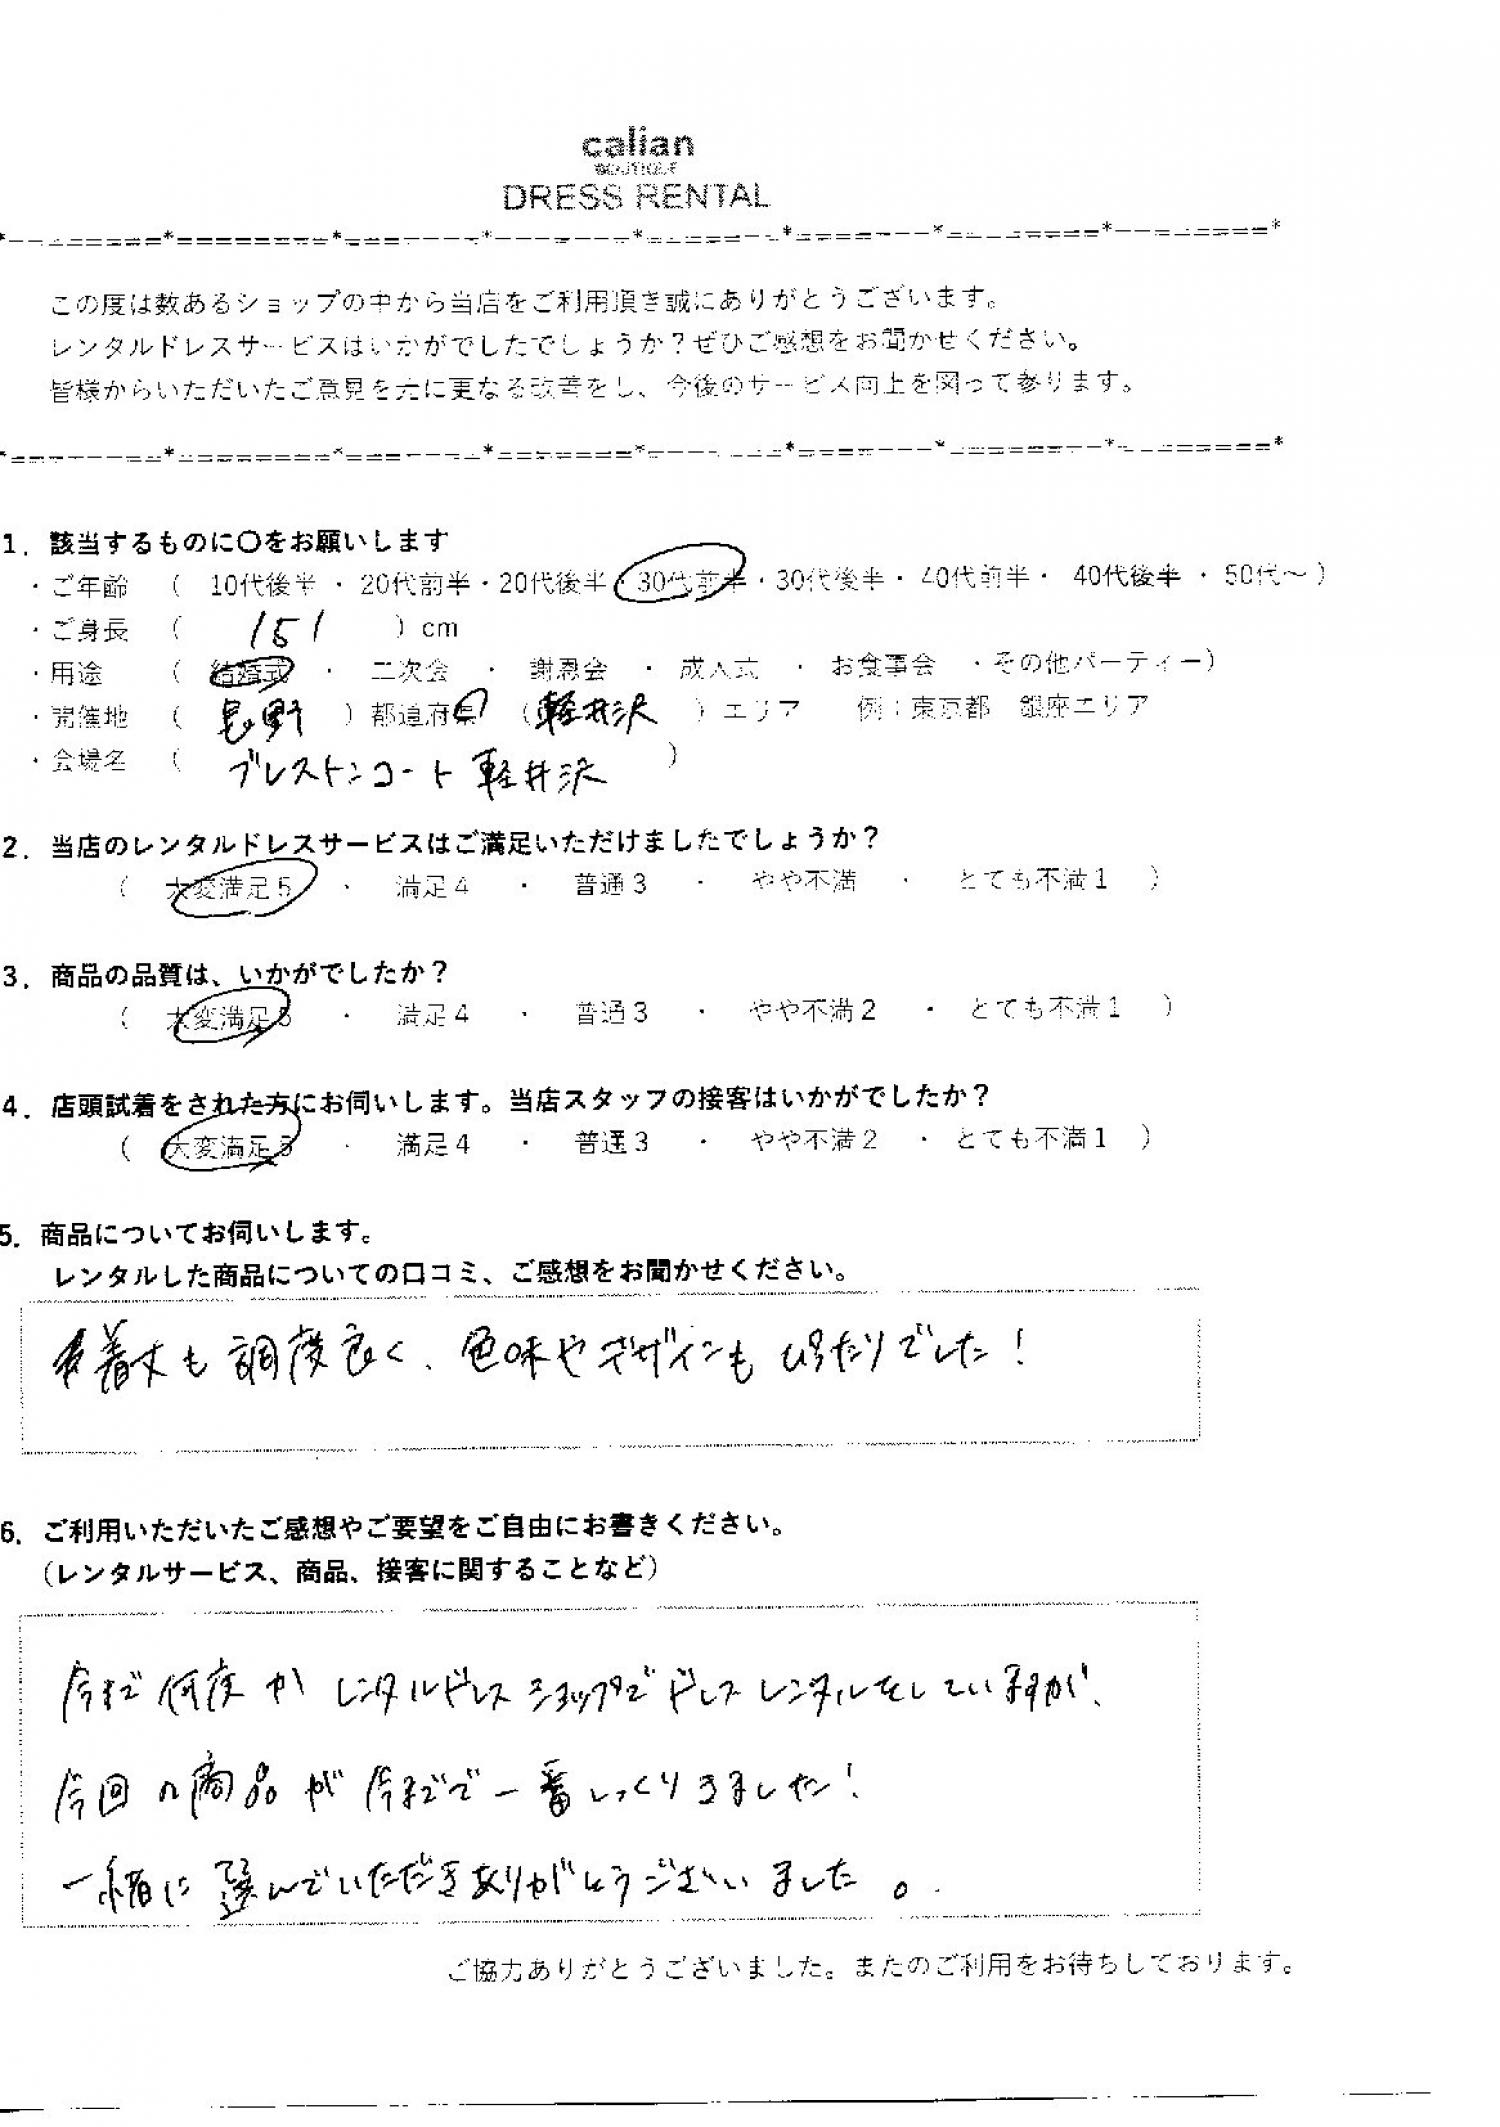 calian
BOUTIQUE
DRESS RENTAL
この度は数あるショップの中から当店をご利用頂き誠にありがとうございます。
レンタルドレスサービスはいかがでしたでしょうか？ぜひご感想をお聞かせください。
皆様からいただいたご意見を元に更なる改善をし、今後のサービス向上を図って参ります。
1．該当するものに〇をお願いします
・ご年齢 （ 10代後半 ・ 20代前半・20代後半・30代前半・30代後半・ 40代前半・ 40代後半 ・ 50代～ ）
・ご身長 （ 151 ）cm
・用途 （ 結婚式 ・ 二次会 ・ 謝恩会 ・ 成人式 ・ お食事会 ・その他パーティー）
・開催地 （ 長野 ）都道府県 （軽井沢 ）エリア 例：東京都 銀座エリア
・会場名 （ ブレストンコート軽井沢 ）
2．当店のレンタルドレスサービスはご満足いただけましたでしょうか？
（ 大変満足５ ・ 満足４ ・ 普通３ ・ やや不満 ・ とても不満１ ）
3．商品の品質は、いかがでしたか？
（ 大変満足５ ・ 満足４ ・ 普通３ ・ やや不満２ ・ とても不満１ ）
4．店頭試着をされた方にお伺いします。当店スタッフの接客はいかがでしたか？
（ 大変満足５ ・ 満足４ ・ 普通３ ・ やや不満２ ・ とても不満１ ）
5．商品についてお伺いします。
レンタルした商品についての口コミ、ご感想をお聞かせください。
着丈も調度良く、色味やデザインもぴったりでした！
6．ご利用いただいたご感想やご要望をご自由にお書きください。
（レンタルサービス、商品、接客に関することなど）
今まで何度かレンタルドレスショップでドレスレンタルをしていますが、
今回の商品が今までで一番しっくりきました！
一緒に選んでいただきありがとうございました。
ご協力ありがとうございました。またのご利用をお待ちしております。